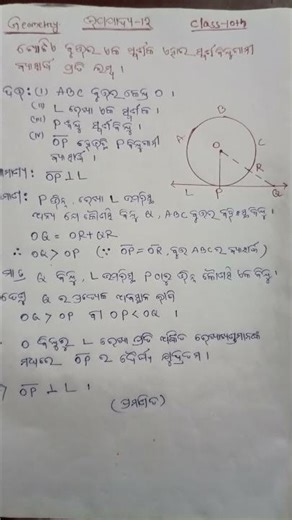 Geometry ଉପପାଦ୍ୟ-12 Class-10th
ବୃତ୍ତର ଏକ ସ୍ପର୍ଶକ ସ୍ପର୍ଶବିନ୍ଦୁଗାମୀ
ବ୍ୟାସାର୍ଦ୍ଧ ପ୍ରତି ଲମ୍ବ ।
ଦତ୍ତ: (i) ABC ବୃତ୍ତର କେନ୍ଦ୍ର O ।
(ii) L ରେଖା ଏକ ସ୍ପର୍ଶକ ।
(iii) P ସ୍ପର୍ଶବିନ୍ଦୁ ।
(iv) OP ହେଉଛି P ବିନ୍ଦୁଗାମୀ
ବ୍ୟାସାର୍ଦ୍ଧ ।
OP ⊥ L
P ଭିନ୍ନ ରେଖା L ଉପରିସ୍ଥ
ଅନ୍ୟ ଯେ କୌଣସି ବିନ୍ଦୁ Q, ABC ବୃତ୍ତର ବହିଃସ୍ଥ ବିନ୍ଦୁ ।
OQ = OR + QR
∴ OQ > OP (∵ OP = OR, ବୃତ୍ତ ABC ର ବ୍ୟାସାର୍ଦ୍ଧ)
Q ବିନ୍ଦୁ, L ଉପରିସ୍ଥ P ଠାରୁ ଭିନ୍ନ କୌଣସି ଏକ ବିନ୍ଦୁ ।
Q ର ପ୍ରତ୍ୟେକ ଅବସ୍ଥାନ ପାଇଁ
OQ > OP ବା OP < OQ ।
O ବିନ୍ଦୁରୁ L ରେଖା ପ୍ରତି ଅଙ୍କିତ ରେଖାଖଣ୍ଡମାନଙ୍କ
ମଧ୍ୟରେ OP ର ଦୈର୍ଘ୍ୟ କ୍ଷୁଦ୍ରତମ ।
OP ⊥ L ।
(ପ୍ରମାଣିତ)
A
B
C
O
R
L
P
Q